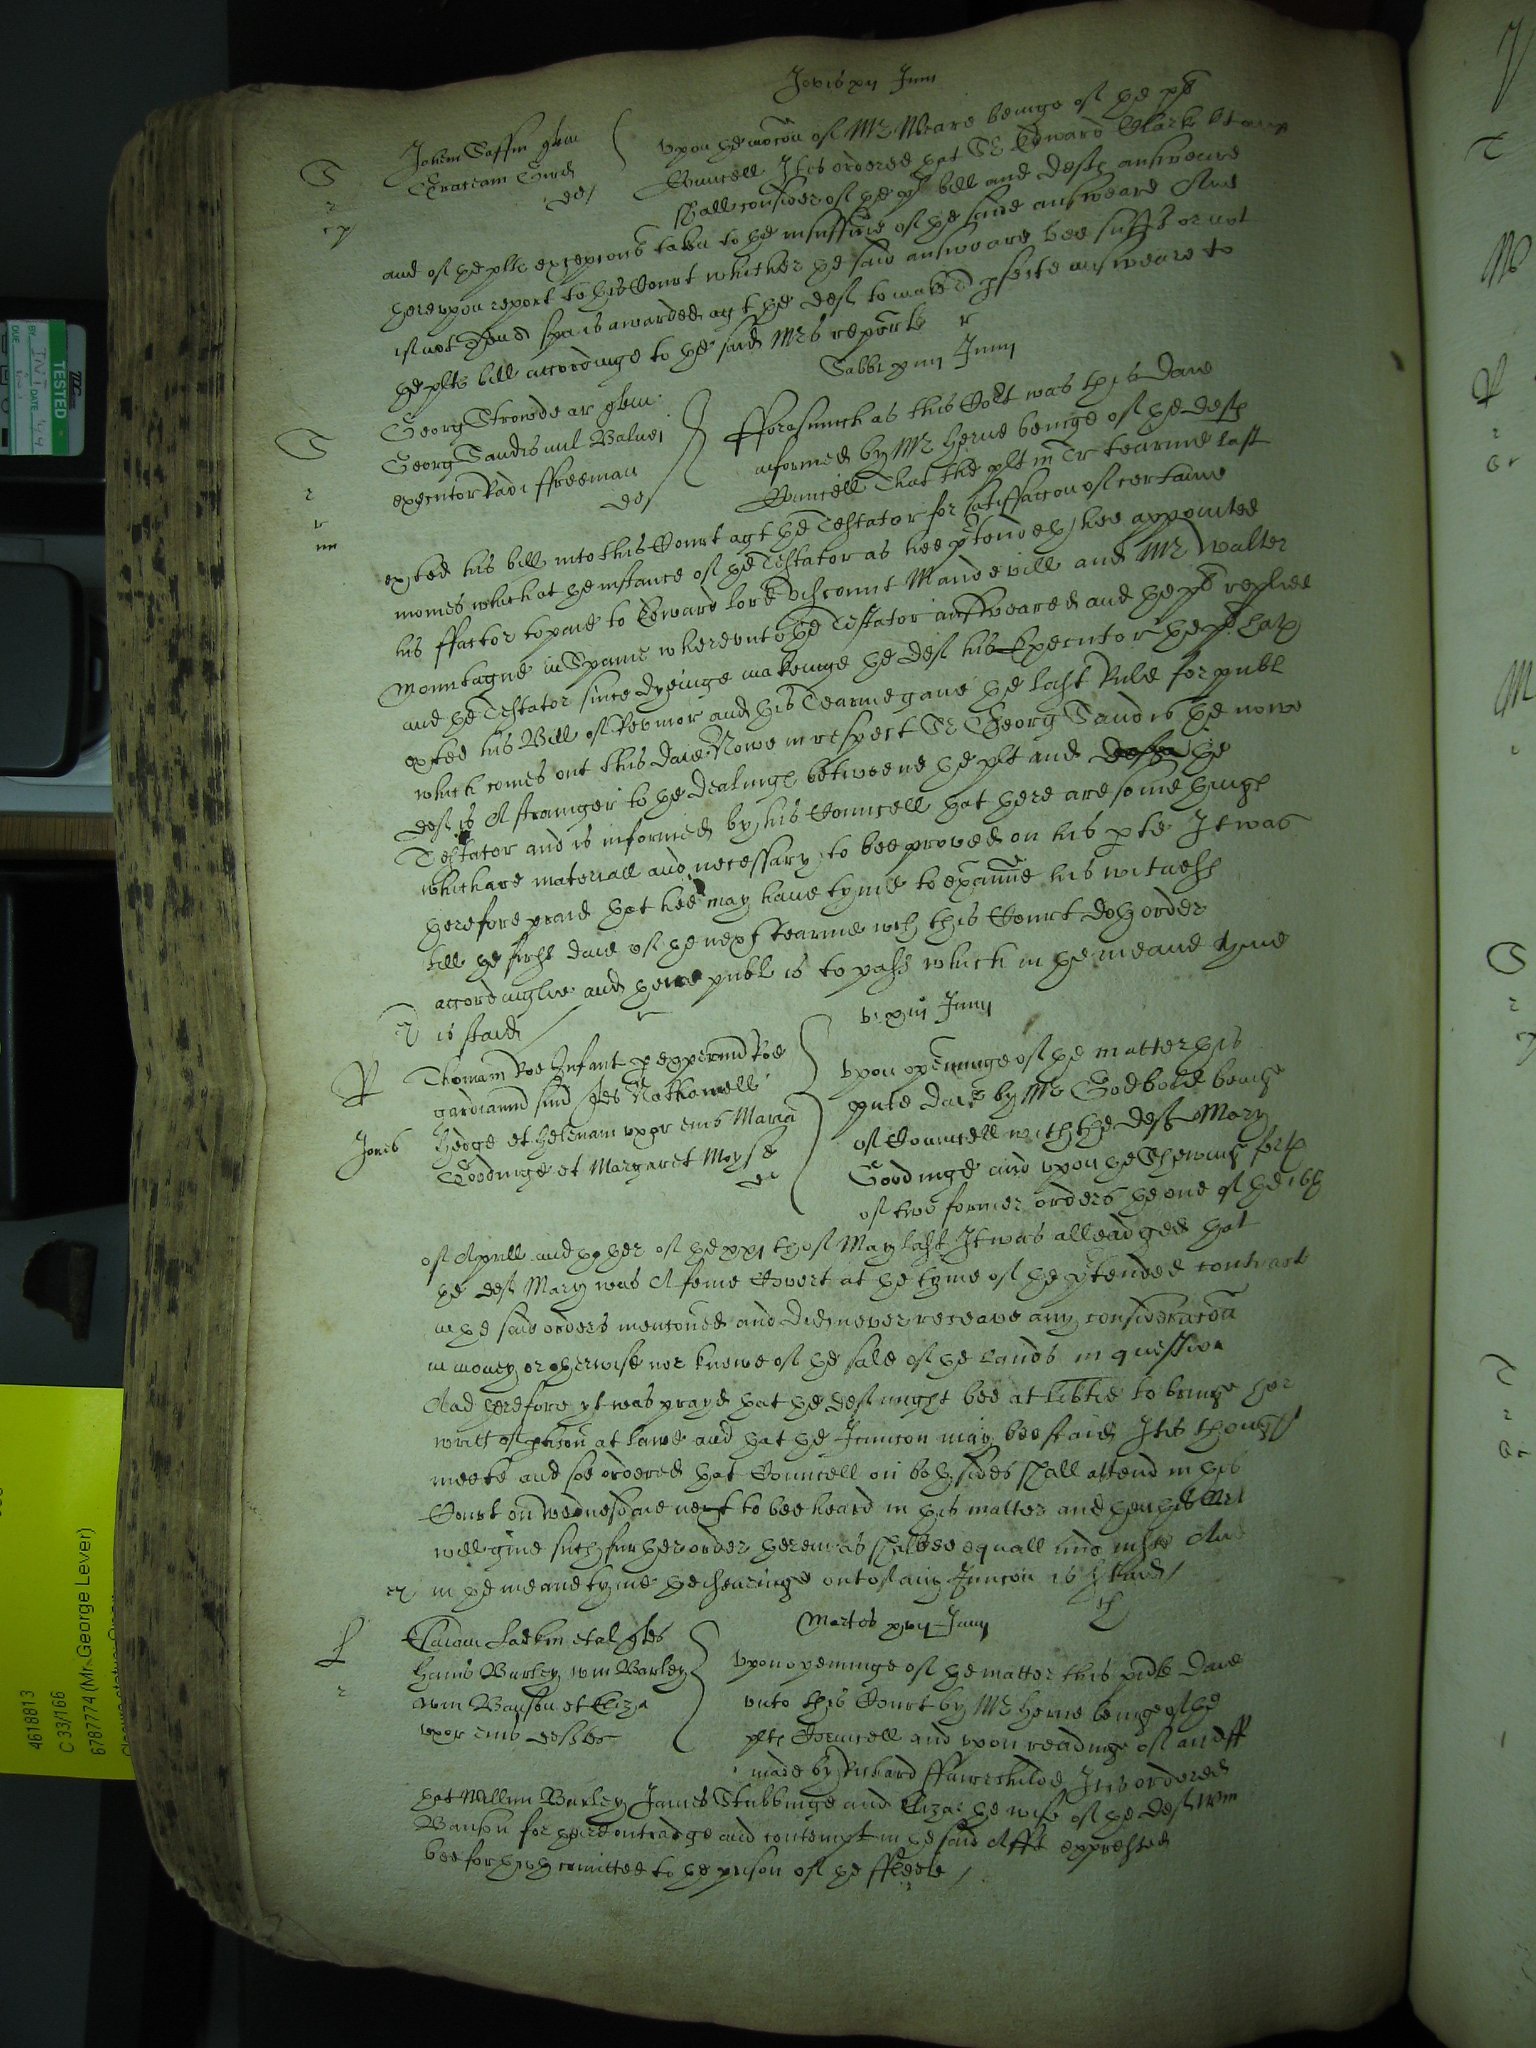 Jovis xij Junij
S
Johem Saffin quer
Upon the mocon of Mr Weare beinge of the pls
def
Councell It is ordered that Sr Edward Clarke
shall consider of the pls bill and defts answeare
and of the plts excepcons taken to the insufficie of the same answeare And
thereupon report to this Court whither the said answeare bee suffict or not
if not then a spa is awarded agt the deft to make a pfecte answeare to
the plts bill accordinge to the said Mrs reporte
Sabbi xiiij Junij
S
Georg Strowde ar quer
Georg Sandis mil Balnei
executor Radi ffreeman
def
fforasmuch as this Cort was this daie
informed by Mr Herne beinge of the defts
Councell That the plt in Tr tearme last
exhted his bill into this Court agt the Testator for satisffaccon of certaine
monies which at the instance of the Testator as hee ptendeth hee appointed
his ffactor to paie to Edward Lord Viscount Mandevill and Mr Walter
Mountague in Spaine whereunto the Testator answeared and the pls replied
and the Testator since dyeinge makeinge the deft his Executor the pls hath
exhted his Bill of Revivor and this Tearme gave the last Rule for publ
which comes out this daie Nowe in respect Sr Georg Sandis the nowe
deft is A stranger to the dealings betweene the plt and the
Testator and is informed by his Councell that there are some things
which are materiall and necessary to bee proved on his pte It was
therefore praied that hee may have tyme to examine his witnesses
till the first daie of the next Tearme wch this Court doth order
accordinglie and then publ is to passe which in the meane tyme
is staid
Veneris xiij Junij
R
Thomam Roe Infant p experimd Roe
gardianu suu quer Nathanaell
Jones
Hedge et Helenam uxor eius Maria
Goodinge et Margaret Moyse
def
Upon openinge of the matter this
pnte daie by Mr Godbold beinge
of Councell with the deft Mary
Goodinge and upon the shewinge forth
of two former orders the one of the 16th
of Aprill and thother of the xxj th of May last It was alleadged that
the deft Mary was A feme Covert at the tyme of the ptended contract
in the said orders menconed and did never receave any consideracon
in money or otherwise nor knowe of the sale of the lands in question
And therefore yt was prayd that the deft might bee at libtie to bringe her
writt of pticon at lawe and that the Iniuncon may bee staid It is thought
meete and soe ordered that Councell on both sides shall attend in this
Court on wednesdaie next to bee heard in this matter and then this Cort
will give such further order therein as shalbee equall and iuste And
in the meane tyme the shearinge out of any Iniuncon is staid
Martis xvij Junij
L
Larkin et al quer
Hanis Burley Wm Barley
Wm Banson et Eliza
uxor eius defts
Upon openinge of the matter this pnte daie
unto this Court by Mr Herne beinge of the
plts Councell and upon readinge of an aff
made by Richard ffairechilde It is ordered
that Willim Burley James Stubbinge and Eliza the wife of the deft Wm
Banson for their outradge and contempt in the said Afft expressed
bee forthwth comitted to the prison of the ffleete
TESTED
DATE
DUE
4618813
C 33/166
6787774 (Mr George Lever)